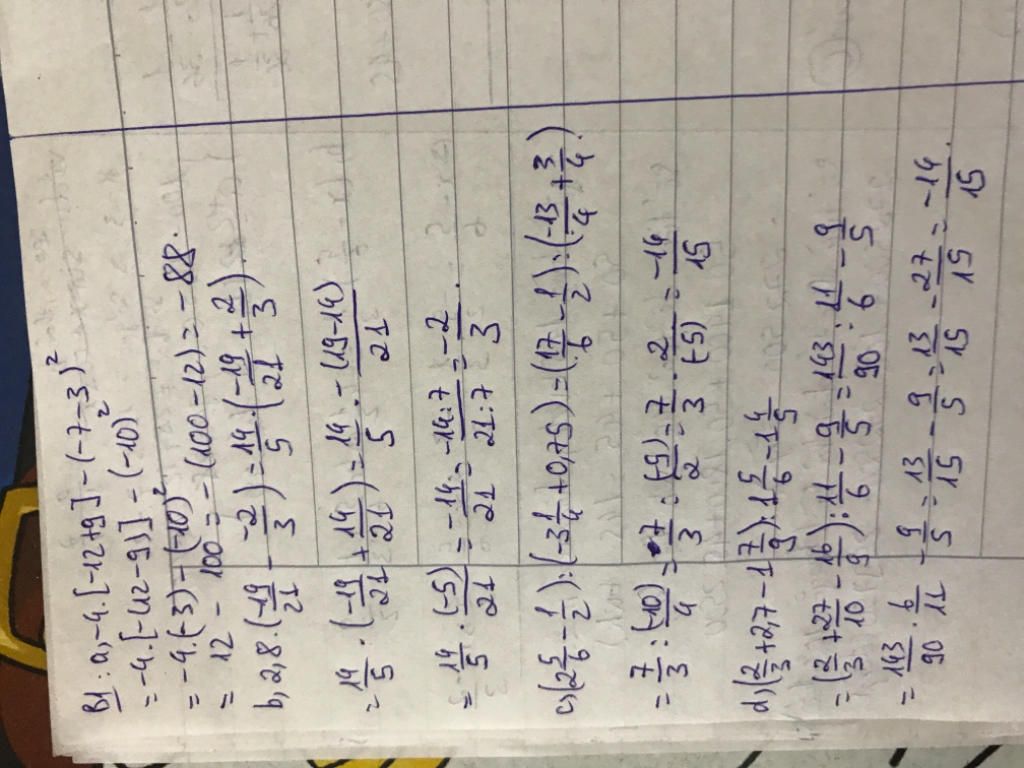 B1: a, -4.[-12+9] - (-7-3)²
= -4.[-(12-9)] - (-10)²
= -4.(-3) - (-10)²
= 12 - 100 = -(100-12) = -88.
b, 2,8.(-19/21 - -2/3) = 14/5.(-19/21 + 2/3)
= 14/5.(-19/21 + 14/21) = 14/5 . -(19-14)/21
= 14/5 . (-5)/21 = -14/21 = -14:7/21:7 = -2/3.
c,(2 5/6 - 1/2):(-3 1/4 + 0,75) = (17/6 - 1/2):(-13/4 + 3/4).
= 7/3 : (-10)/4 = 7/3 : (-5)/2 = 7/3 . 2/(-5) = -14/15
d,(2/3 + 2,7 - 1 7/9):1 5/6 - 1 4/5
= (2/3 + 27/10 - 16/9):11/6 - 9/5 = 143/90 : 11/6 - 9/5
= 143/90 . 6/11 - 9/5 = 13/15 - 9/5 = 13/15 - 27/15 = -14/15.